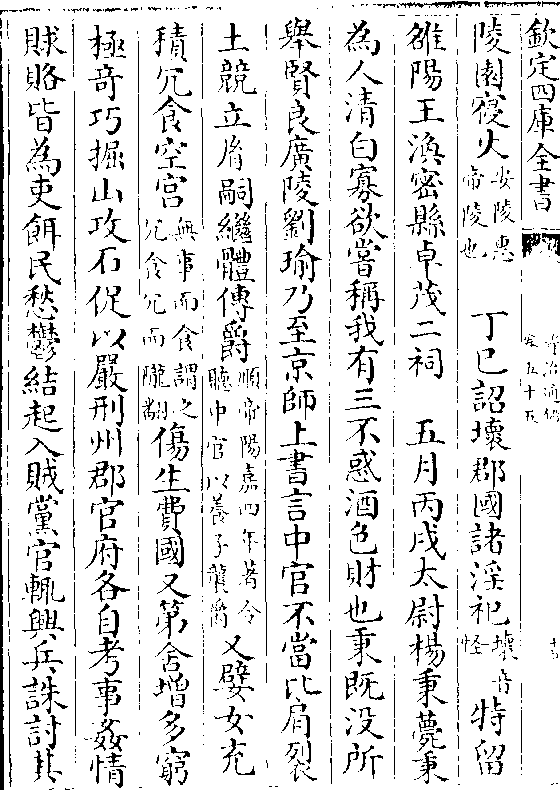 欽定四庫全書
資治通鑑
卷五十五
陵園寢火安陵惠帝陵也 丁巳詔壞郡國諸淫祀壞音怪特留
雒陽王渙密縣卓茂二祠 五月丙戌太尉楊秉薨秉
為人清白寡欲嘗稱我有三不惑酒色財也秉既没所
舉賢良廣陵劉瑜乃至京師上書言中官不當比肩裂
土競立𦙍嗣繼體傳爵順帝陽嘉四年著令聽中官以養子襲爵又嬖女充
積冗食空宫無事而食謂之冗食冗而隴翻傷生費國又第舍增多窮
極奇巧掘山攻石促以嚴刑州郡官府各自考事姦情
賕賂皆為吏餌民愁鬱結起入賊黨官輒興兵誅討其